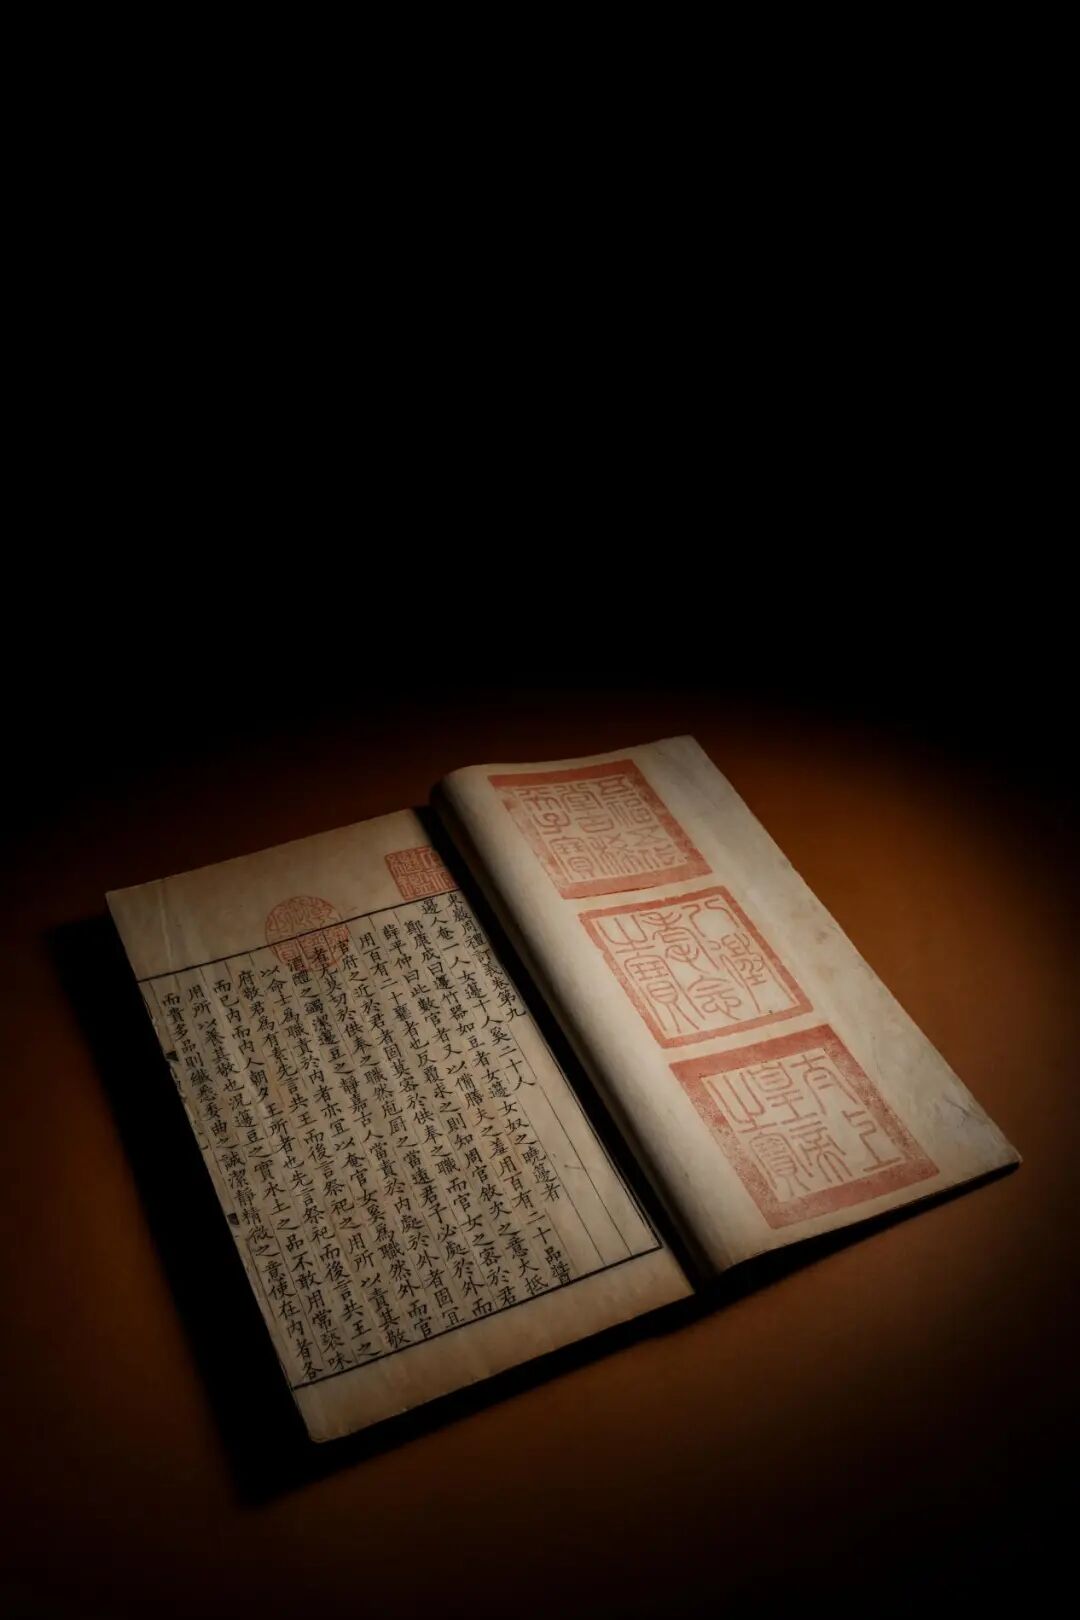 五福五代
堂古稀天
子寶
八徵
耄念
之寶
太上
皇帝
之寶
天祿
繼鑑
乾隆
御覽
之寶
東巖周禮訂義卷第九
籩人奄一人女籩十人奚二十人
鄭康成曰籩竹器如豆者女籩女奴之曉籩者
薛平仲曰此數官者又以備膳夫之羞用百有二十品醬
用百有二十甕者也反覆求之則知周官敘次之意大抵
官府之近於君者固莫容於供奉之職而官女之密於君
者尤莫切於供奉之職然庖厨之當遠君子必處於外而
酒醴之蠲潔籩豆之靜嘉古人當責於內處於外者固宜
以命士為職責於內者亦宜以奄官女奚為職然外而官
府敬君為有素先言共王而後言祭祀之用所以責其敬
而已內而內人朝夕王所者也先言祭祀而後言共王之
用所以養其敬也況籩豆之實水土之品不敢用常褻味
而貴多品則纖悉委曲之誠潔靜精微之意使在內者各